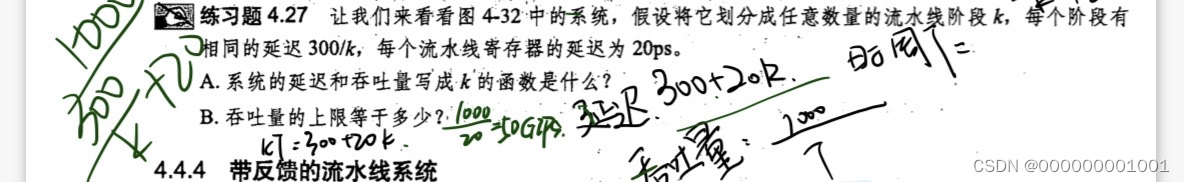 练习题 4.27 让我们来看看图 4-32 中的系统，假设将它划分成任意数量的流水线阶段 k，每个阶段有
相同的延迟 300/k，每个流水线寄存器的延迟为 20ps。
A. 系统的延迟和吞吐量写成 k 的函数是什么？
B. 吞吐量的上限等于多少？
1000/20=50GIPS.
延迟: 300+20k.
kT=300+20k.
吞吐量: 1000/T
1000
300/k+20
4.4.4 带反馈的流水线系统
CSDN @000000001001